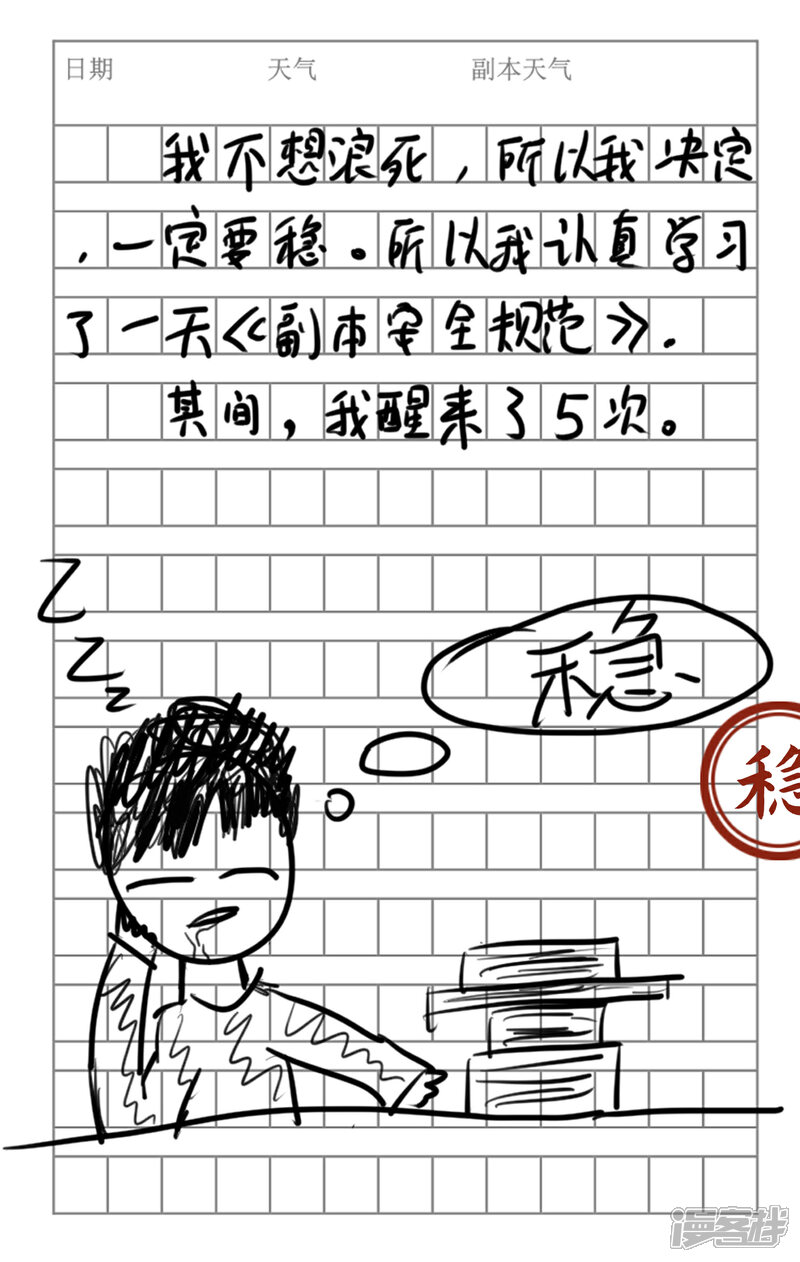 日期 天气 副本天气
我不想浪死，所以我决定
，一定要稳。所以我认真学习
了一天《副本安全规范》.
其间，我醒来了5次。
Z
Z
Z
稳
稳
漫客栈